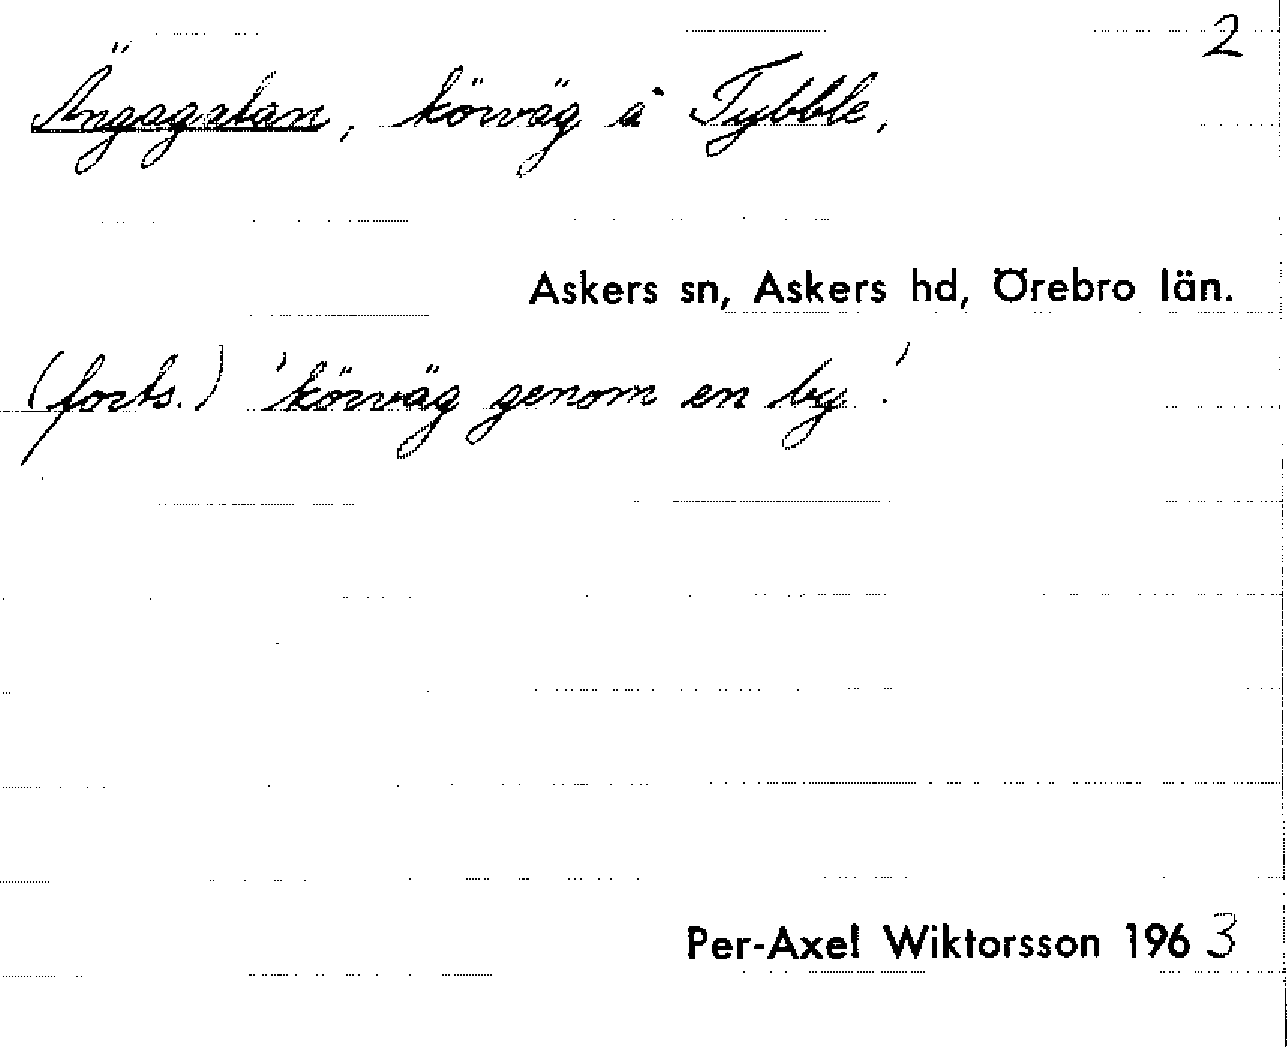 2
Ängagatan, körväg å Tybble,
Askers sn, Askers hd, Örebro län.
(forts.) 'körväg genom en by.'
Per-Axel Wiktorsson 1963